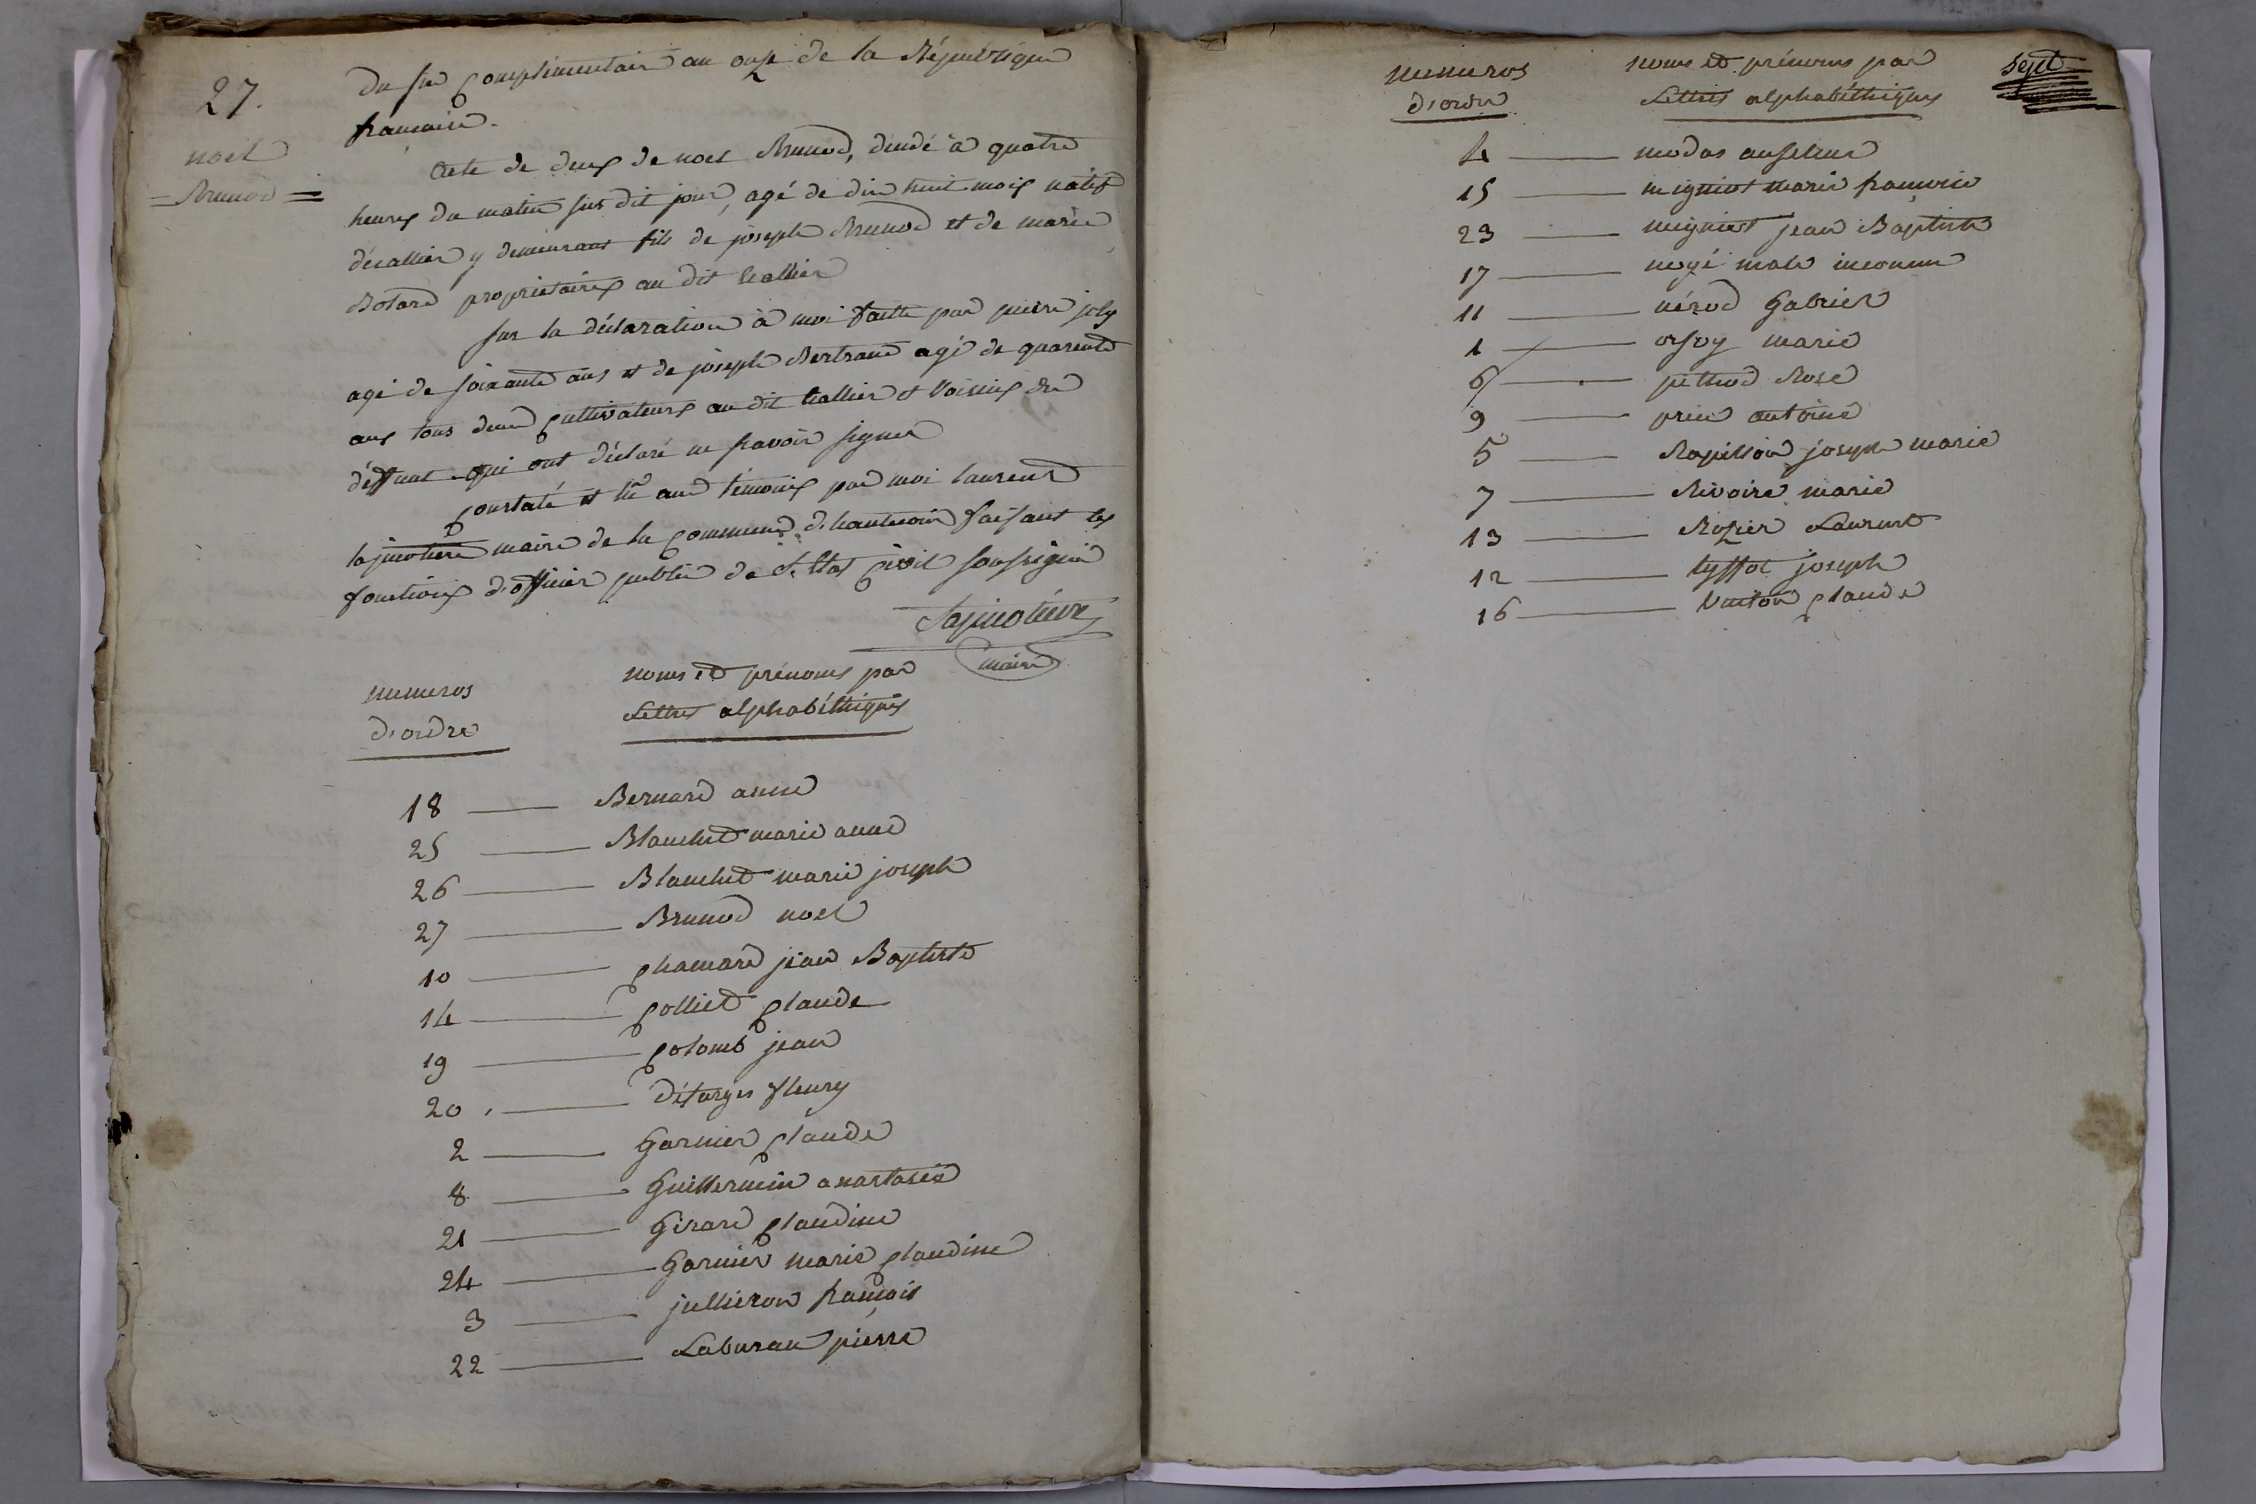 27.
noel
Brunod
Du 5e Complimentair an onze de la République
française.
Acte de deces de noel Brunod, décédé à quatre
heures du matin sus dit jour, agé de dix huit mois natif
décallier y demeurant fils de joseph Brunod et de marie
Bolard propriétaires au dit
Sur la déclaration à moi faitte par pierre joly
agé de soixante ans et de joseph Bertrand agé de quarente
ans tous deux Cultivateurs au dit et voisins du
déffunt qui ont déclaré ne savoir signer
Constaté et lu aux témoins par moi laurent
maire de la Commune faisant les
fonctions d'officier public de Civil soussigné
maire
numeros
d'ordre
noms et prénoms par
Lettres alphabéthiques
18 Bernard anne
25 Blanchet marie anne
26 Blanchet marie joseph
27 Brunod noel
10 Chamard jean Baptiste
14 Colliet Claude
19 Colomb jean
20 Détarges fleury
2 Garnier Claude
8 Guillermin anastasie
21 Girard Claudine
24 Garnier marie Claudine
3 jullieron françois
22 Laburan pierre
Sept
numeros
d'ordre
noms et prénoms par
Lettres alphabéthiques
4 modas
15 migniot marie françoise
23 migniot jean Baptiste
17 male inconnu
11 nérod Gabriel
1 orsoy marie
6 Rose
9 antoine
5 Rapillion joseph marie
7 Rivoire marie
13 Rozier Laurent
12 tyssot joseph
16 Claude